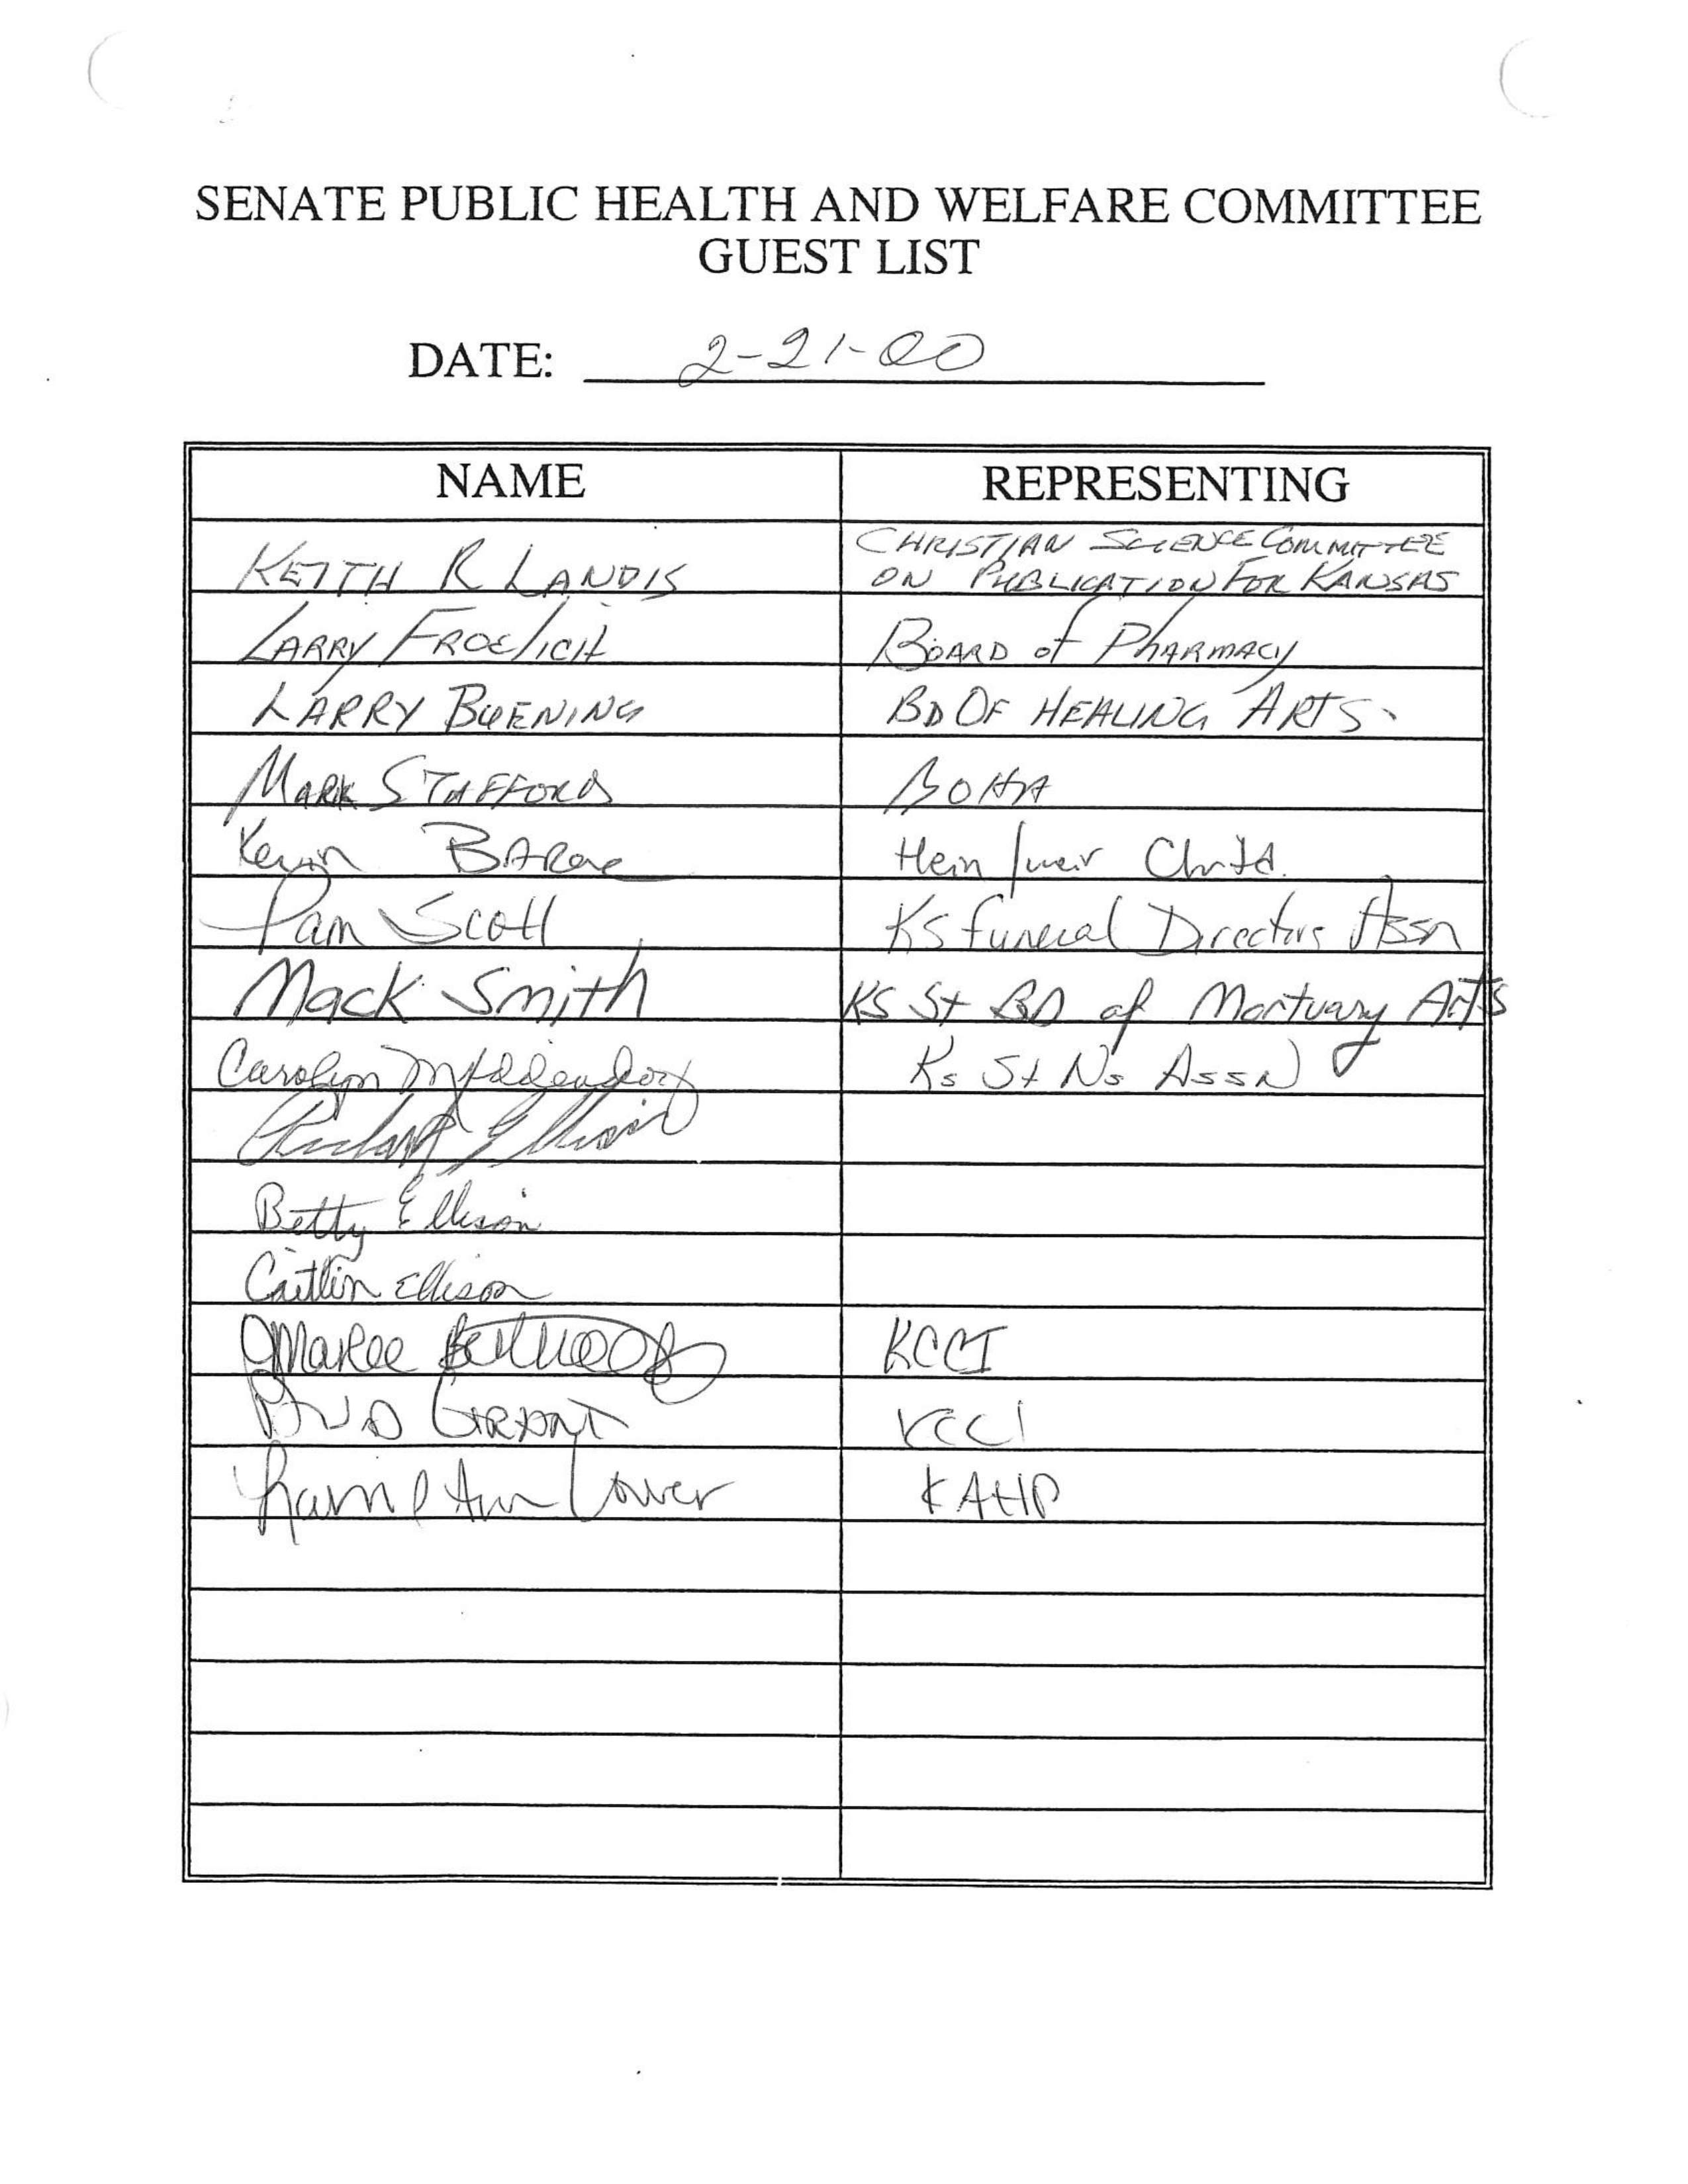 SENATE PUBLIC HEALTH AND WELFARE COMMITTEE
GUEST LIST
DATE: 2-21-00
NAME REPRESENTING
KEITH R LANDIS CHRISTIAN SCIENCE COMMITTEE
ON PUBLICATION FOR KANSAS
LARRY FROElICH BOARD of PHARMACY
LARRY BUENING BD OF HEALING ARTS.
MARK STAFFORD BOHA
Kevin BARone Hein/weir Chrtd.
Pam Scott KS Funeral Directors Assn
Mack Smith KS St BD of Mortuary Arts
Carolyn Middendorf Ks St Ns Assn
Richard Ellison
Betty Ellison
Caitlin Ellison
KCCI
BUD GRANT KCCI
Ann KAHP